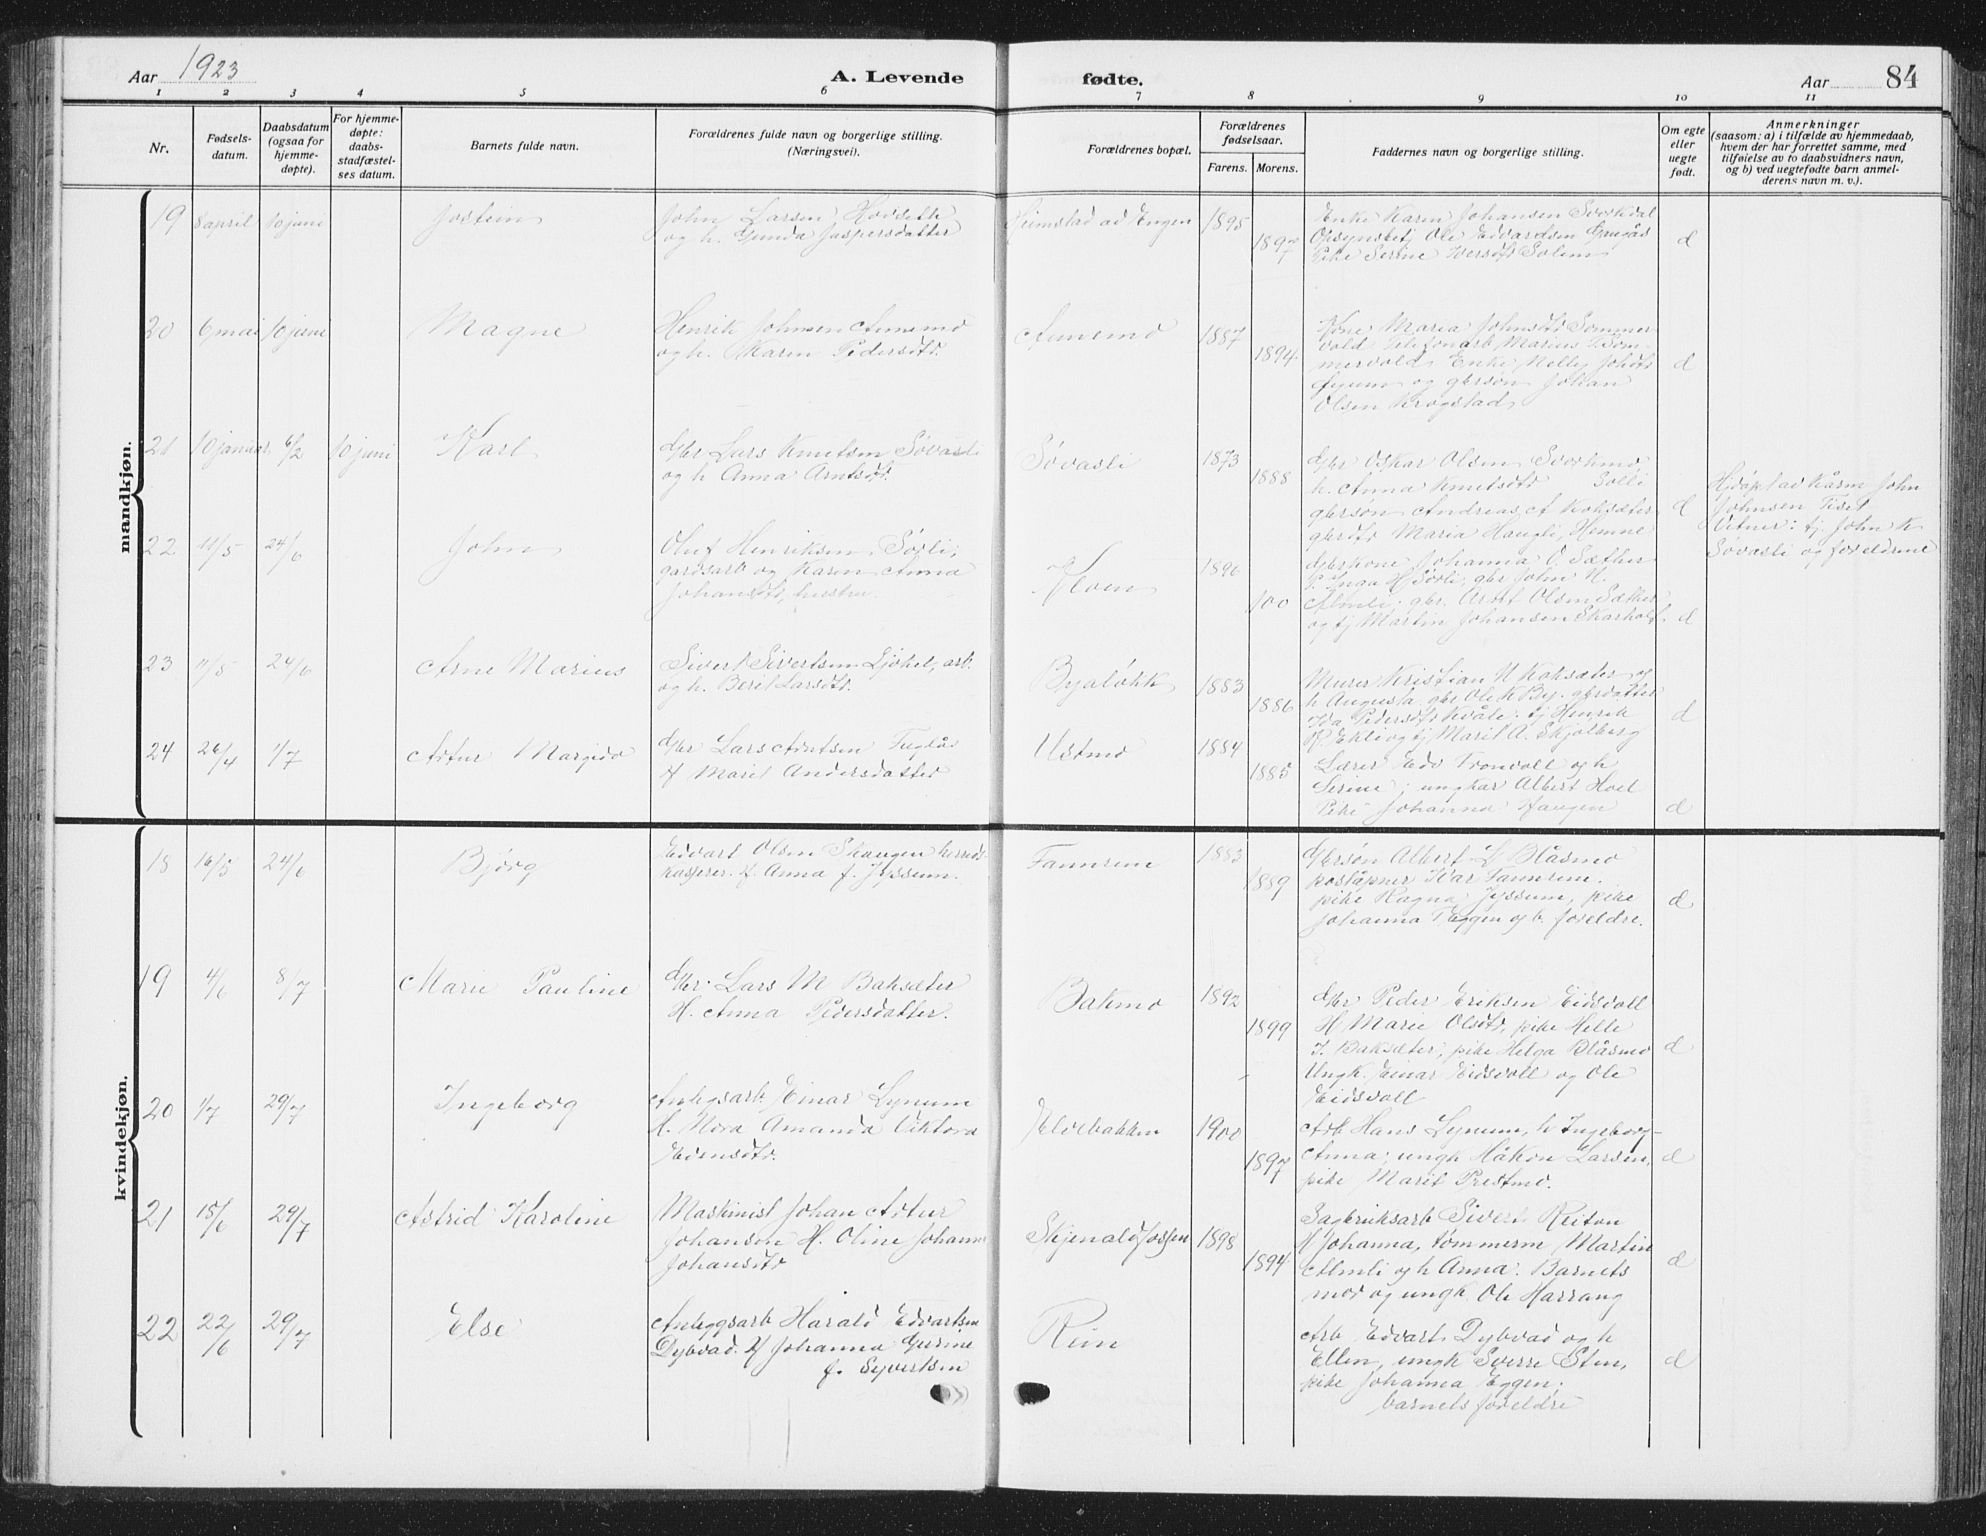 Aar 1923
A. Levende
fødte.
Aar 84
1 2 3 4 5 6 7 8 9 10 11
Nr.
Fødsels-
datum.
Daabsdatum
(ogsaa for
hjemme-
døpte).
For hjemme-
døpte:
daabs-
stadfæstel-
ses datum.
Barnets fulde navn.
Forældrenes fulde navn og borgerlige stilling.
(Næringsvei).
Forældrenes bopæl.
Forældrenes
fødselsaar.
Farens. Morens.
Faddernes navn og borgerlige stilling.
Om egte
eller
uegte
født.
Anmerkninger
(saasom: a) i tilfælde av hjemmedaab,
hvem der har forrettet samme, med
tilføielse av to daabsvidners navn,
og b) ved uegtefødte barn anmel-
derens navn m. v.).
mandkjøn.
19 8 april 10 juni Jostein
John Larsen Hovseth
og h. Gunda Jaspersdatter
Heimstad ad Engen 1895
1897
Enke Karen Johansen Svorkdal
Opsynsbetj Ole Edvardsen
Pike Serine Iversdtr Solem
d
20 6 mai 10 juni Magne
Henrik Johnsen Aunemo
og h. Karen Pedersdtr.
Aunemo 1887
1894
Kone Maria Johnsdtr Sommer-
vold Telefonarb Marius Som-
mervold Enke Nelly
og gbrsøn Johan
Olsen Krogstad
d
21 10 januar 6/2 10 juni Karl
Gbr Lars Knutsen Søvasli
og h Anna Arntsdtr.
Søvasli 1873
1888
Gbr Oskar Olsen Svorkmo
h. Anna Knutsdtr Solli
gbrsøn Andreas A Koksæter
gbrdtr Maria Haugli, Hemne
d
Hjdøpt av Kårm John
Johnsen Tiset
Vitner: tj. John K
Søvasli og foreldrene
22 11/5 24/6 John
Oluf Henriksen Sørli,
gardsarb og Karen Anna
Johansdtr, hustru.
Kloen 1896
100
Gbrkone Johanna O. Sæther
P. Inga H Sørli, gbr John H.
Almli; gbr. Arnt Olsen Sæther
og tj Martin Johansen Skarholt.
d
23 11/5 24/6 Arne Marius
Sivert Sivertsen Ljøkel, arb.
og h. Berit Larsdtr.
Byaløkk 1883
1886
Murer Kristian N Koksæter og
h Augusta, gbr Ole K By. gbrdatter
Ida Pedersdtr Kvåle; tj Henrik
K Ekli og tj Marit A. Skjølberg
d
24 26/4 1/7 Artur Margido
Gbr Lars Arntsen Fuglås
H Marit Andersdatter
Ustmo 1884
1885
Lærer Edv Tronvoll og h
Serine; ungkar Albert Hoel
Pike Johanna Haugen
d
kvindekjøn.
18 16/5 24/6 Bjørg
Edvart Olsen Skaugen herreds-
kasserer. H. Anna f. Jyssum.
Fannrem 1883
1889
Gbrsøn Albert L Blåsmo
poståpner Ivar Fannrem.
pike Ragna Jyssum, pike
Johanna T Eggen og b. foreldre.
d
19 4/6 8/7 Marie Pauline
Gbr. Lars M Baksæter
H. Anna Pedersdatter.
Bakmo 1892
1899
Gbr Peder Eriksen Eidsvoll
H Marie Olsdtr, pike Helle
J. Baksæter, pike Helga Blåsmo
Ungk. Einar Eidsvoll og Ole
Eidsvoll
d
20 1/7 29/7 Ingeborg
Anlegsarb Einar Lynum
H. Nora Amanda Viktora
Edensdtr.
Elvebakken 1900
1897
Arb Hans Lynum, h Ingeborg-
Anna; ungk Håkon Larsen,
pike Marit Prestmo.
d
21 15/6 29/7 Astrid Karoline
Maskinist Johan Artur
Johansen H. Oline Johanne
Johansdtr
Skjenaldfossen 1898
1894
Sagbruksarb Sivert Reitan
H Johanna, tømmerm Martin
Almli og h Anna. Barnets
mor og ungk Ole Harrang
d
22 22/6 29/7 Else
Anleggsarb Harald Edvartsen
Dybvad. H Johanna Gurine
f. Syvertsen
Rein
Arb Edvart Dybvad og h
Ellen, ungk Sverre Sten,
pike Johanna Eggen;
barnets foreldre
d